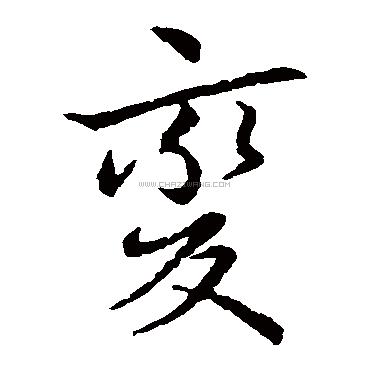 變
WWW.CHAZIWANG.COM